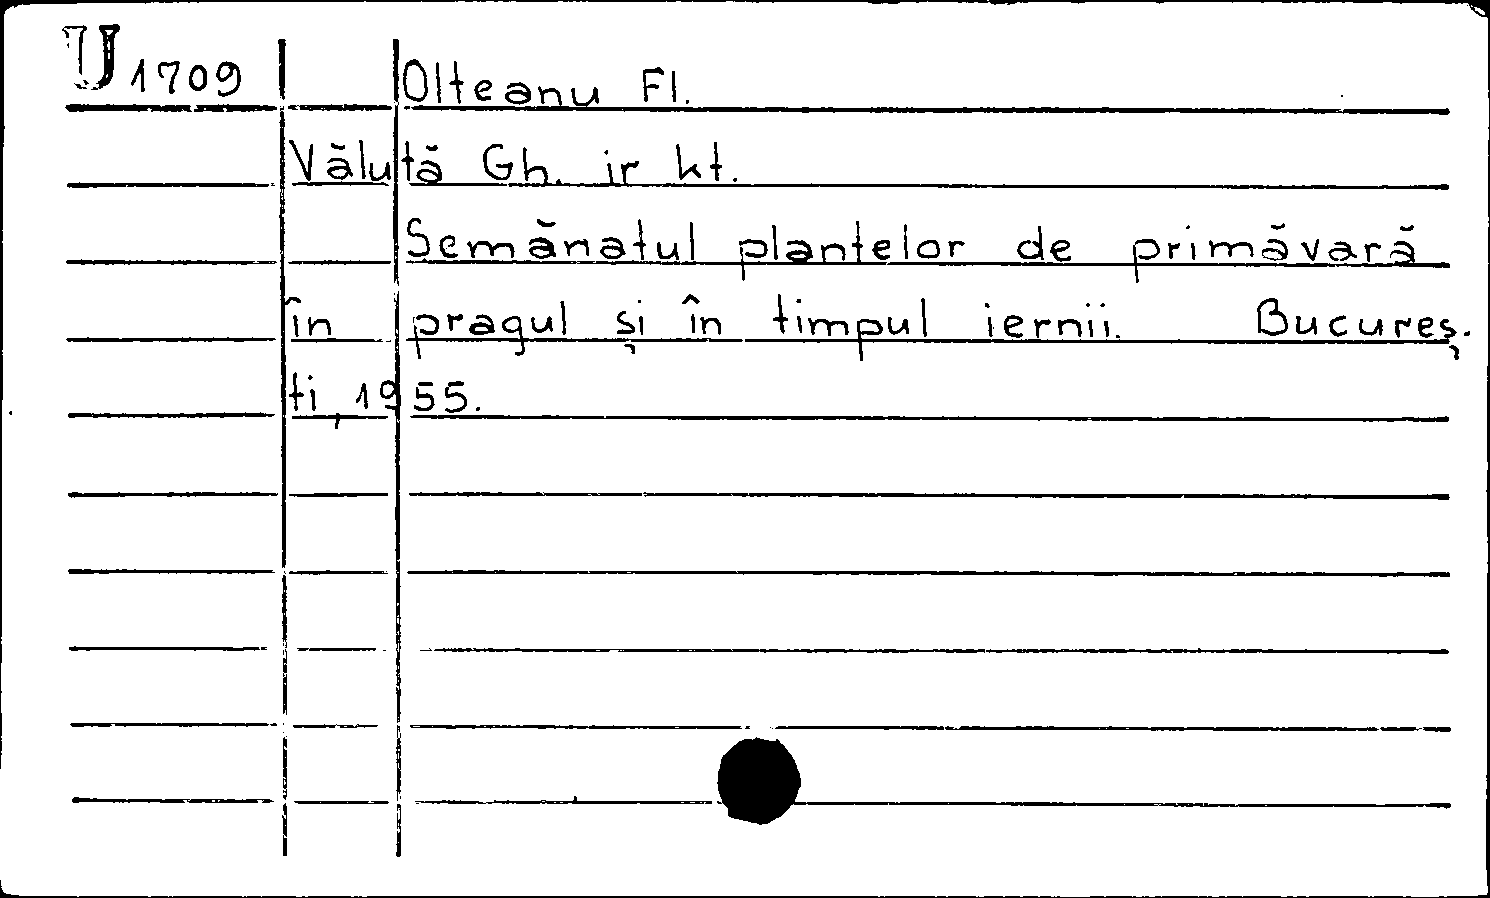 U 1709 Olteanu Fl.
Văluță Gh. ir kt.
Semănatul plantelor de primăvară
în pragul și în timpul iernii. Bucureș.
ti, 1955.